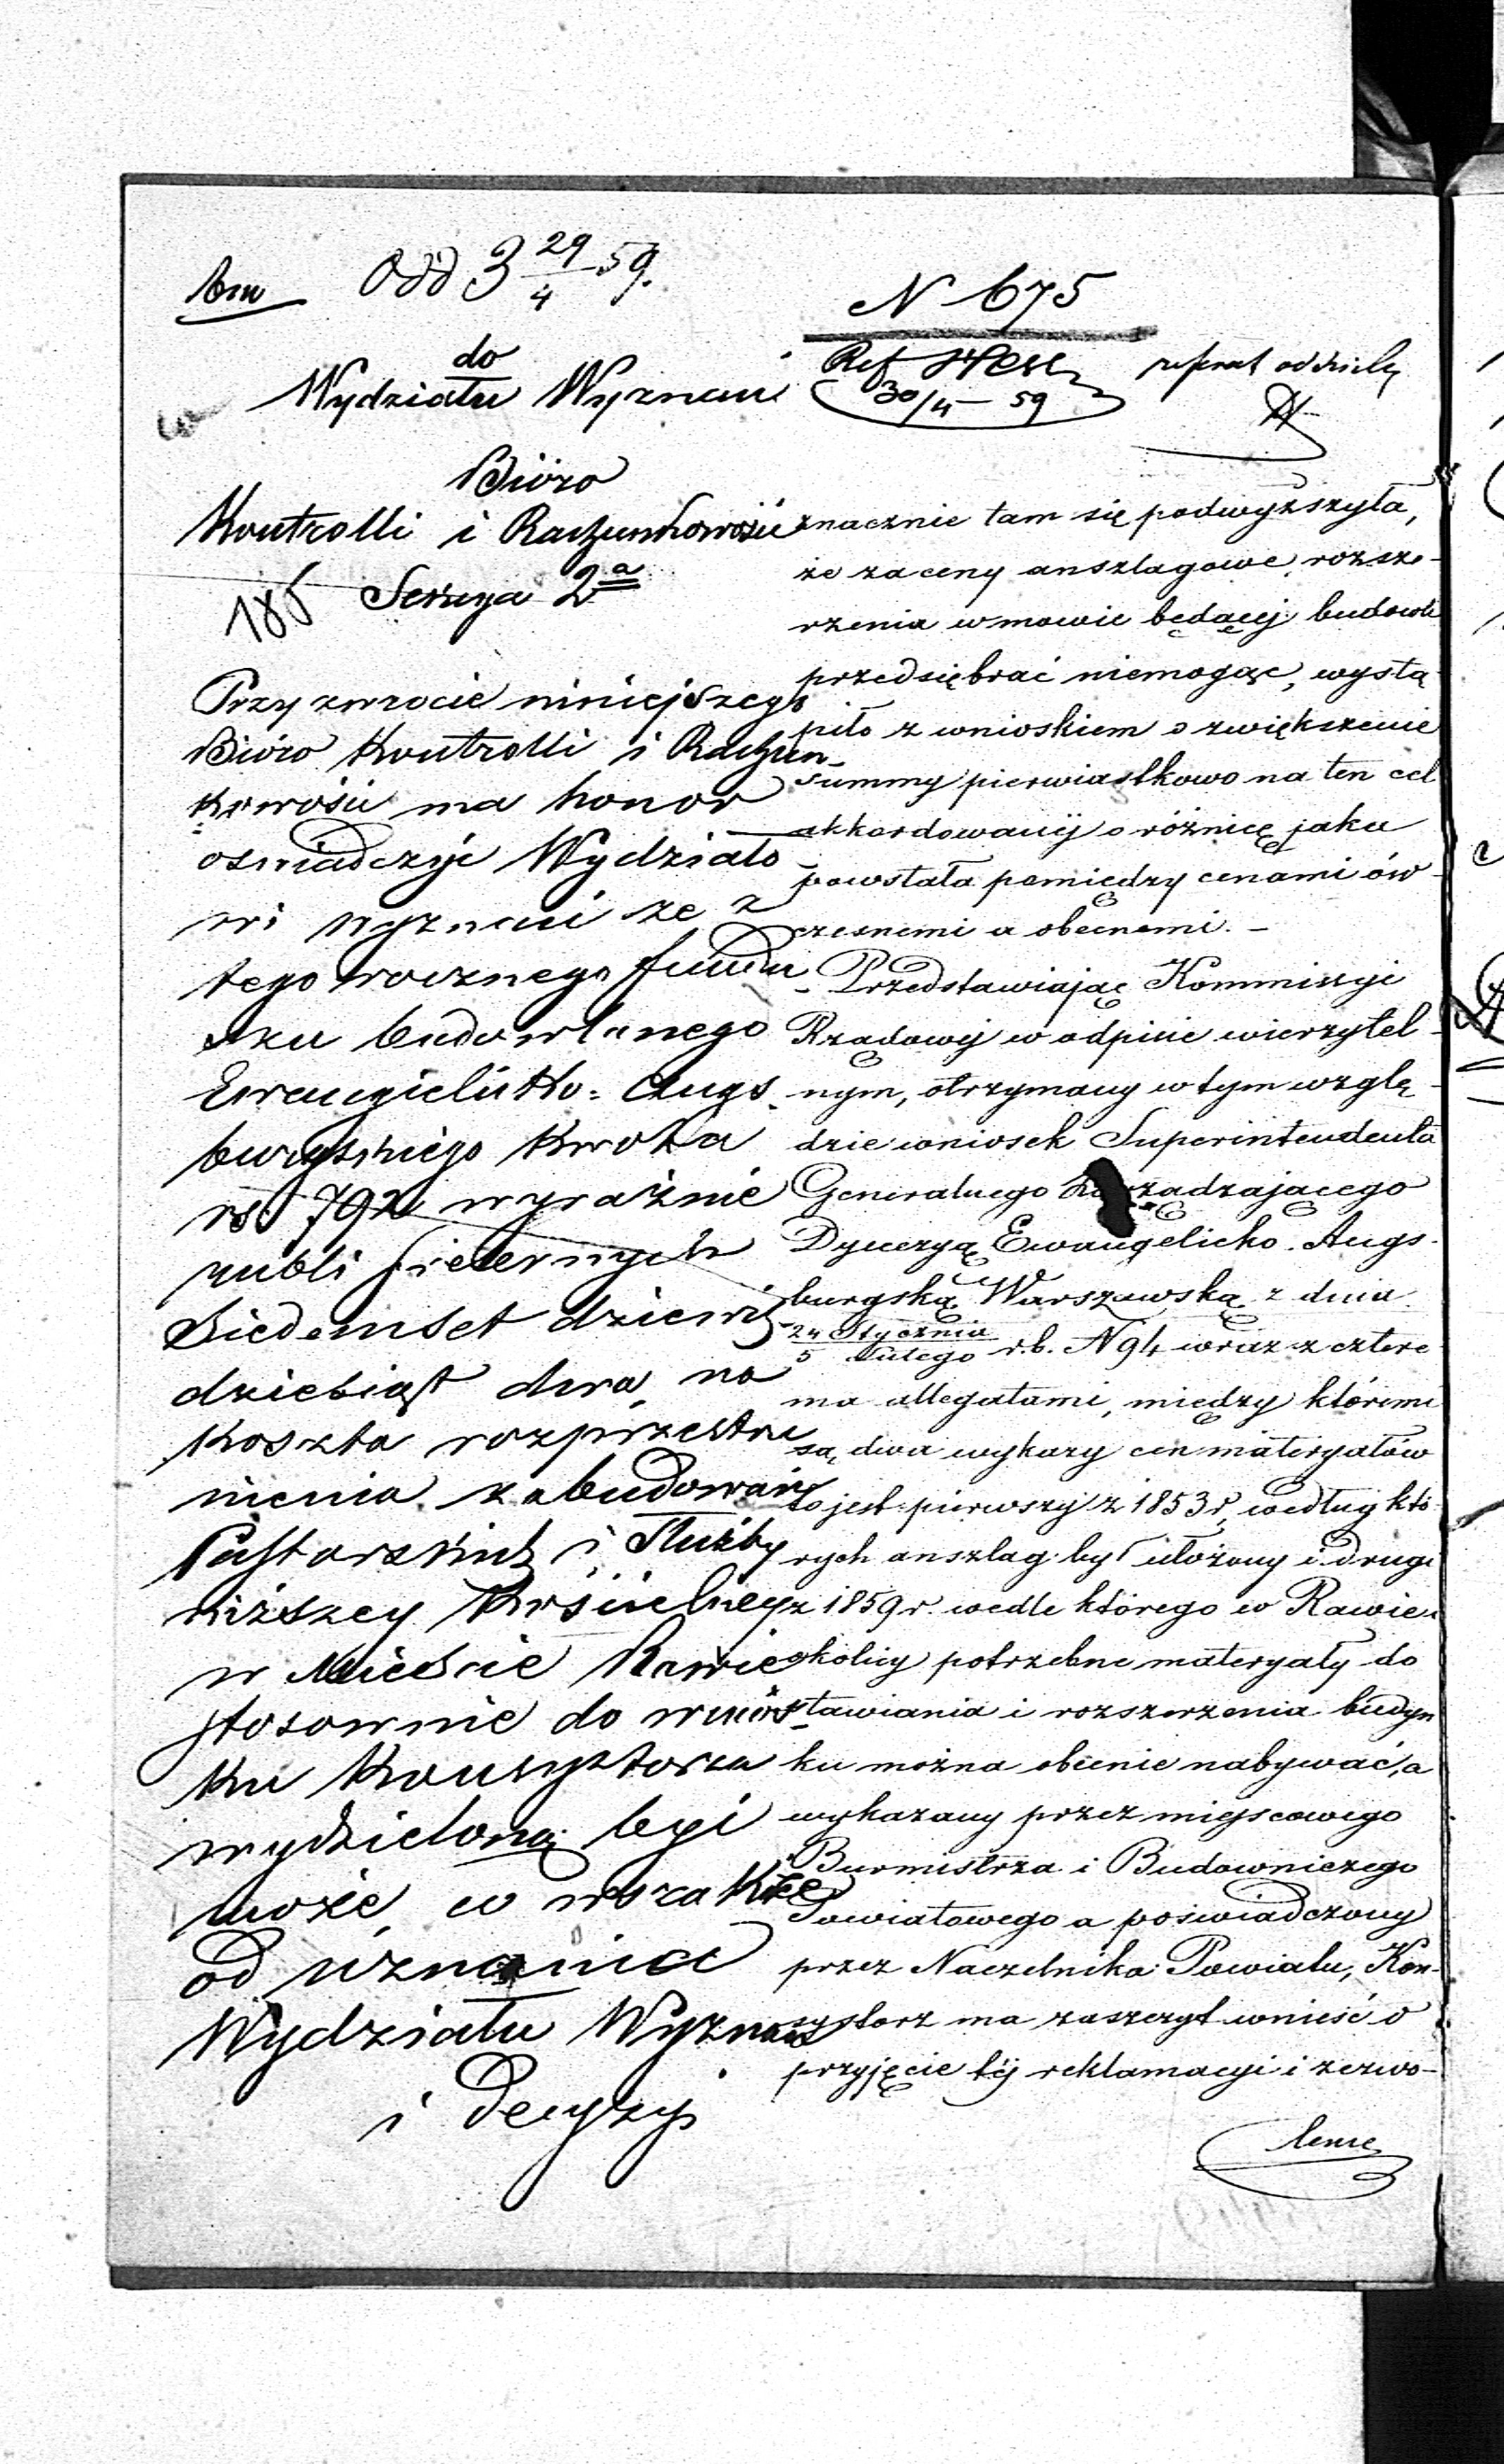 Odd 3 29/4 59.
do
Wydziału Wyznań
Biuro
Kontrolli i Rachunkowości
Sekcya 2a
186
Przy zwrocie niniejszego
Biuro Kontrolli i Rachun-
kowości ma honor
oswiadczyć Wydziało-
wi wyznań że z
tego rocznego fundu-
szu budowlanego
Ewangielicko: Augs-
burgskiego kwota
rs. 792 wyraźnie
rubli srebrnych
Siedemset dziewię-
dziesiąt dwa na
koszta rozprzestrze
nienia zabudowań
Pastorskich i Służby
niższey Kościelney
w Mieście Rawie
stosownie do wnios-
ku Konsystorza
wydzieloną być
może, co wszakże
od uznania
Wydziału Wyznań
i Decyzyi
N 675
Ref Hese
30/4 - 59
referat oddzielny
znacznie tam się podwyższyła,
że za ceny anszlagowe, rozsze-
rzenia w mowie będącej budowli
przedsiębrać niemogąc, wystą-
piło z wnioskiem o zwiększenie
summy pierwiastkowo na ten cel
akkordowanej o różnicę jaka
powstała pomiędzy cenami ów-
czesnemi a obecnemi. -
Przedstawiając Kommissyi
Rządowej w odpisie wierzytel-
nym, otrzymany w tym wzglę-
dzie wniosek Superintendenta
Generalnego Zarządzającego
Dyecezyą Ewangelicko-Augs-
burgską Warszawską z dnia
24 Stycznia / 5 Lutego r.b. N 94 wraz z cztere-
ma allegatami, między któremi
są, dwa wykazy cen materyałów
to jest: pierwszy z 1853 r, według któ-
rych anszlag był ułożony i drugi
z 1859 r. wedle którego w Rawie i
okolicy potrzebne materyały do
stawiania i rozszerzenia budyn
ku można obecnie nabywać, a
wykazany przez miejscowego
Burmistrza i Budowniczego
Powiatowego a poświadczony
przez Naczelnika Powiatu, Kon-
systorz ma zaszczyt wnieść o
przyjęcie tej reklamacyi i zezwo-